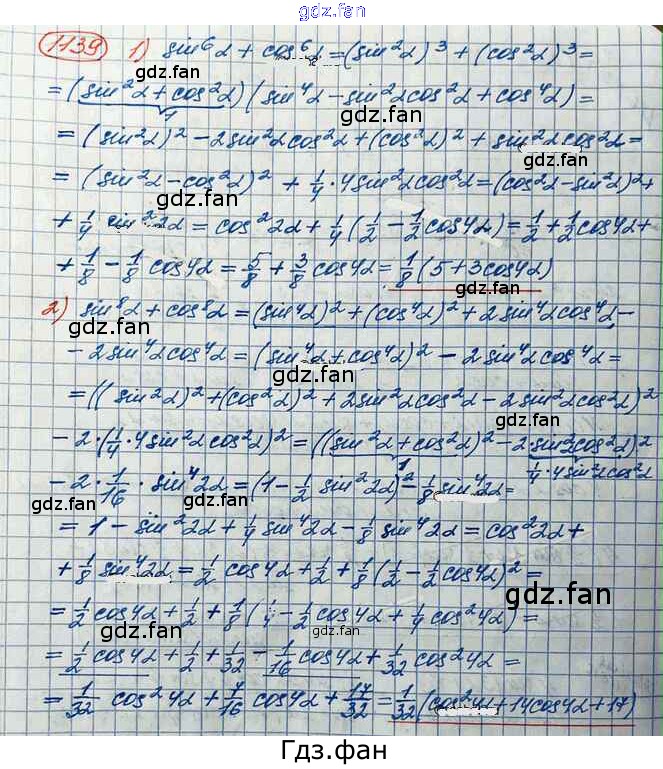 gdz.fan
1139 1) sin⁶α + cos⁶α = (sin²α)³ + (cos²α)³ =
gdz.fan
gdz.fan
= (sin²α + cos²α)(sin⁴α - sin²αcos²α + cos⁴α) =
1
= (sin²α)² - 2sin²αcos²α + (cos²α)² + sin²αcos²α =
gdz.fan
= (sin²α - cos²α)² + 1/4 · 4sin²αcos²α = (cos²α - sin²α)² +
gdz.fan
+ 1/4 sin²2α = cos²2α + 1/4 (1/2 - 1/2 cos4α) = 1/2 + 1/2 cos4α +
gdz.fan
gdz.fan
+ 1/8 - 1/8 cos4α = 5/8 + 3/8 cos4α = 1/8 (5 + 3cos4α)
gdz.fan
2) sin⁸α + cos⁸α = (sin⁴α)² + (cos⁴α)² + 2sin⁴αcos⁴α -
gdz.fan
gdz.fan
- 2sin⁴αcos⁴α = (sin⁴α + cos⁴α)² - 2sin⁴αcos⁴α =
gdz.fan
= ((sin²α)² + (cos²α)² + 2sin²αcos²α - 2sin²αcos²α)²
gdz.fan
- 2·(1/4 · 4sin²αcos²α)² = ((sin²α + cos²α)² - 2·sin²αcos²α)²
gdz.fan
1
1/4 · 4sin²αcos²α
- 2 · 1/16 · sin⁴2α = (1 - 1/2 sin²2α)² - 1/8 sin⁴2α =
gdz.fan
gdz.fan
= 1 - sin²2α + 1/4 sin⁴2α - 1/8 sin⁴2α = cos²2α +
gdz.fan
+ 1/8 sin⁴2α = 1/2 cos4α + 1/2 + 1/8 (1/2 - 1/2 cos4α)² =
gdz.fan
gdz.fan
= 1/2 cos4α + 1/2 + 1/8 (1/4 - 1/2 cos4α + 1/4 cos²4α) =
gdz.fan
= 1/2 cos4α + 1/2 + 1/32 - 1/16 cos4α + 1/32 cos²4α =
gdz.fan
gdz.fan
= 1/32 cos²4α + 7/16 cos4α + 17/32 = 1/32 (cos²4α + 14cos4α + 17)
gdz.fan
Гдз.фан